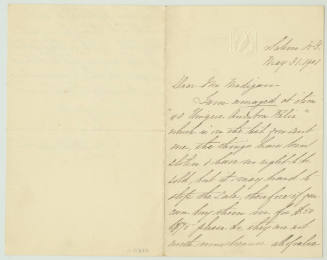 Salem N.Y.
May 31, 1901
Dear Mr Madigan
I am amazed at item
"Unique Audubon Relic"
which is in the list you sent
me, the things have been
stolen & have no right to be
sold, but it may be hard to
stop the sale, therefore if you
can buy them in for $50
$75 please do, they are not
worth more because